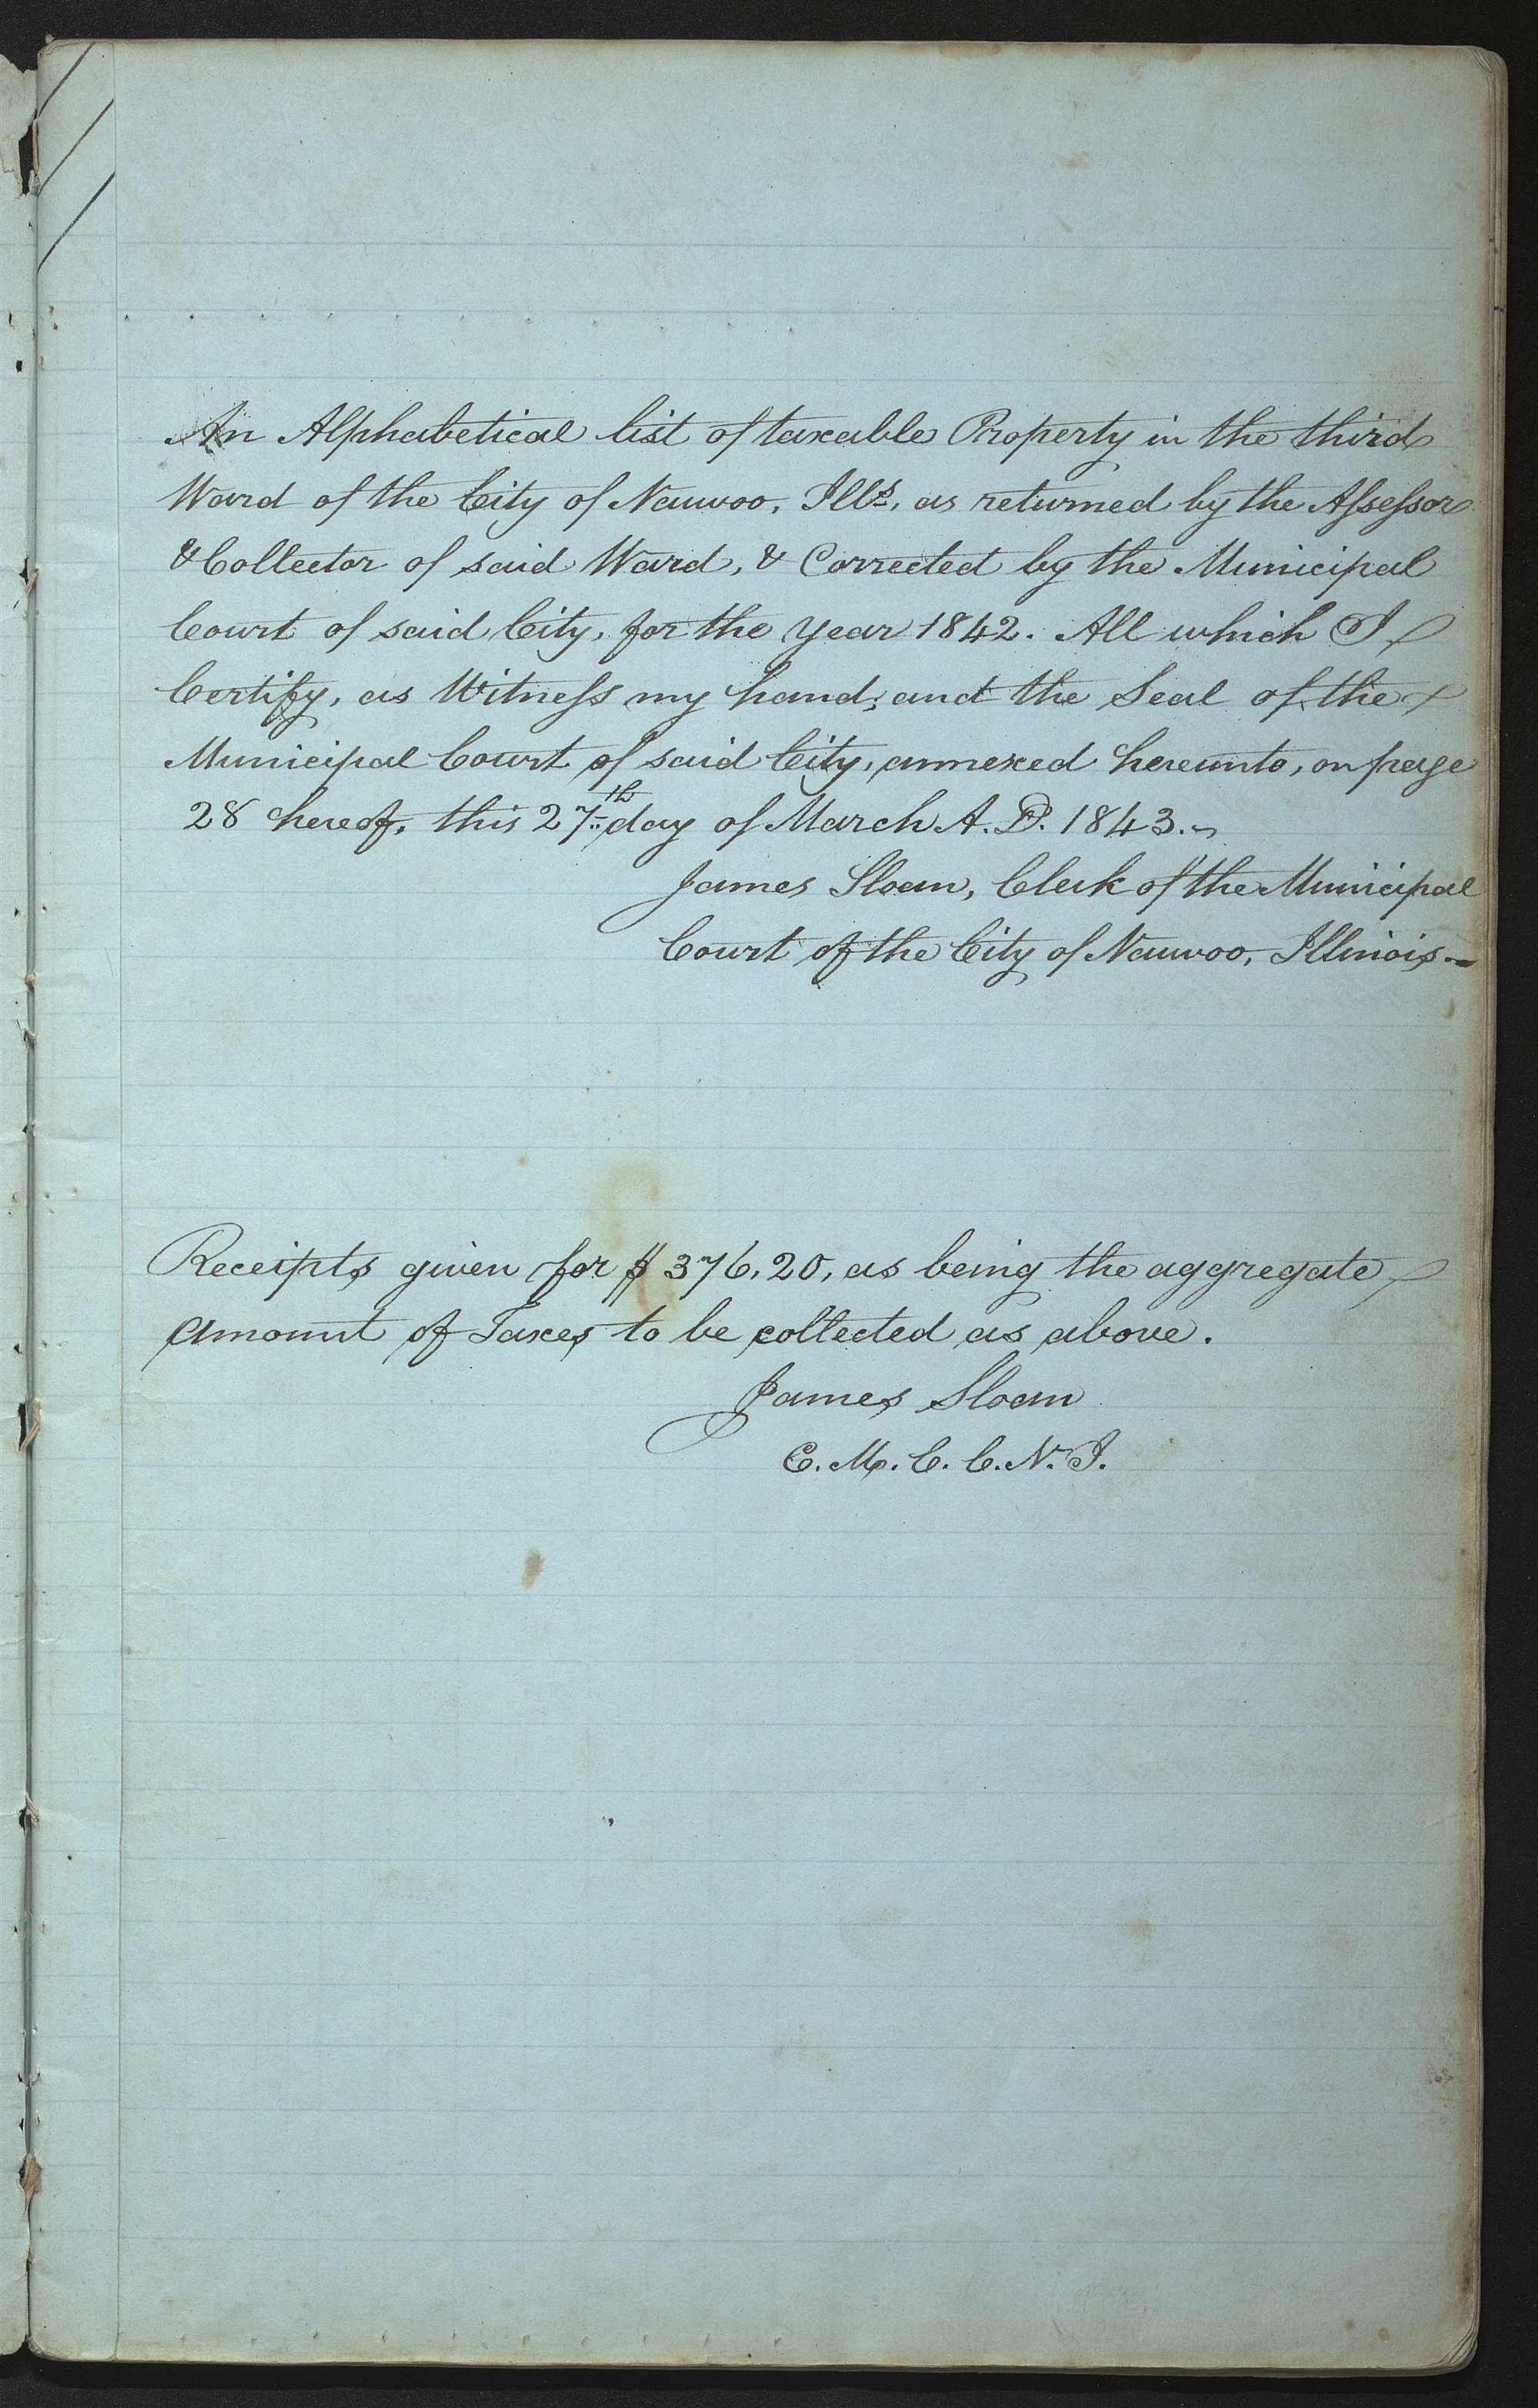 An Alphabetical list of taxable Property in the third
Ward of the City of Nauvoo, Ills, as returned by the Assessor
& Collector of said Ward, & Corrected by the Municipal
Court of said City, for the year 1842. All which I
Certify, as Witness my hand, and the Seal of the
Municipal Court of said City, annexed hereunto, on page
28 hereof, this 27th day of March A.D. 1843.
James Sloan, Clerk of the Municipal
Court of the City of Nauvoo, Illinois.
Receipts given for $376,20, as being the aggregate
amount of Taxes to be collected as above.
James Sloan
C. M. C. C. N. I.